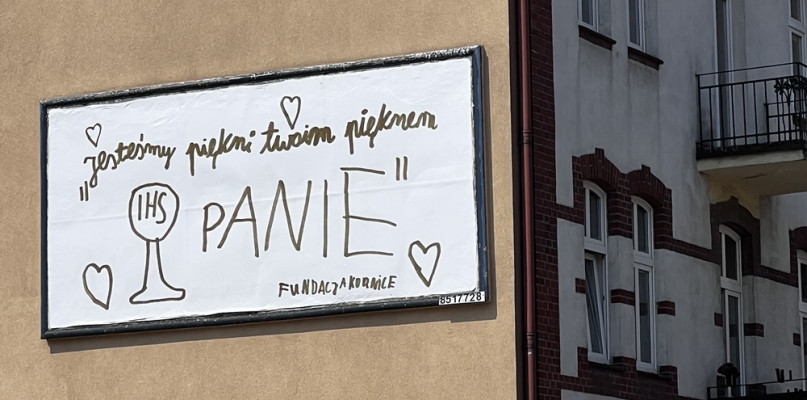 „Jesteśmy piękni twoim pięknem
IHS
PANIE"
FUNDACJA KORNICE
8517728